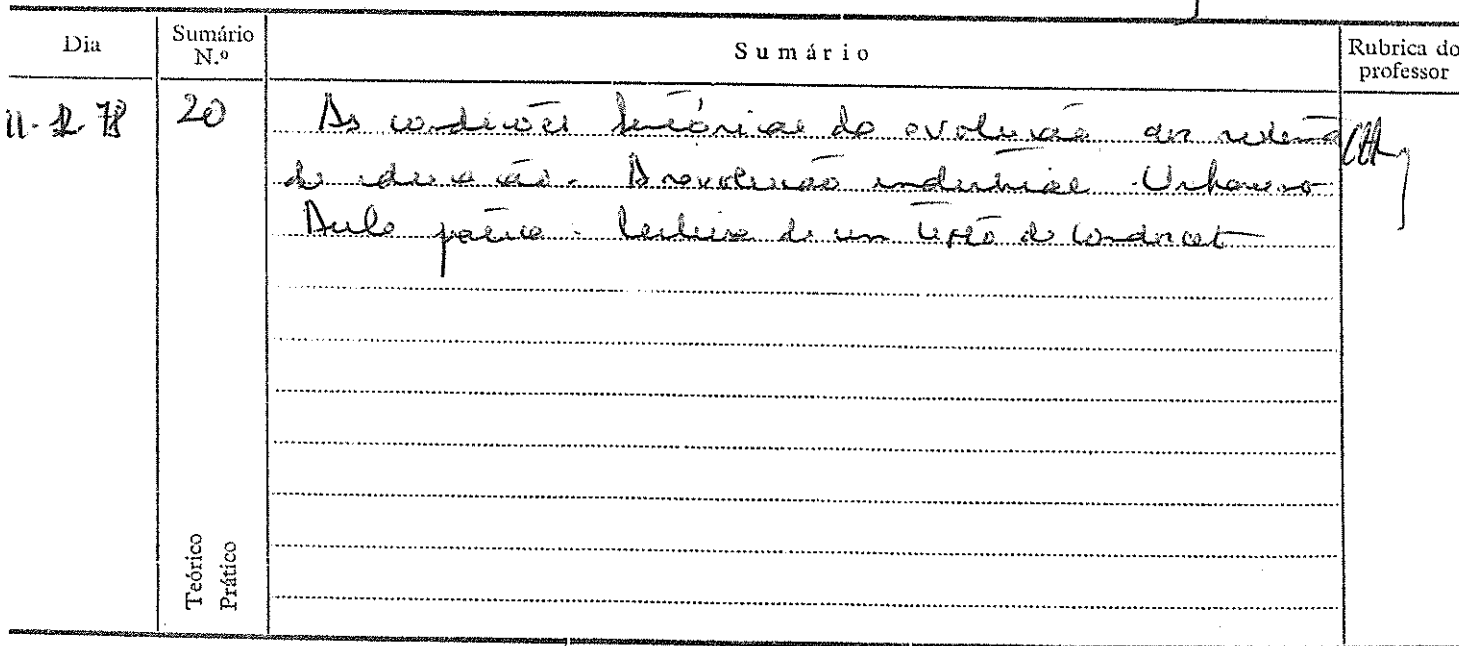 Dia
Sumário N.º
Sumário
Rubrica do professor
11-12-78
20
As condições históricas da evolução dos sistemas
de educação. A revolução industrial. Urbanismo
Aula prática. Leitura de um texto de Condorcet
Teórico
Prático